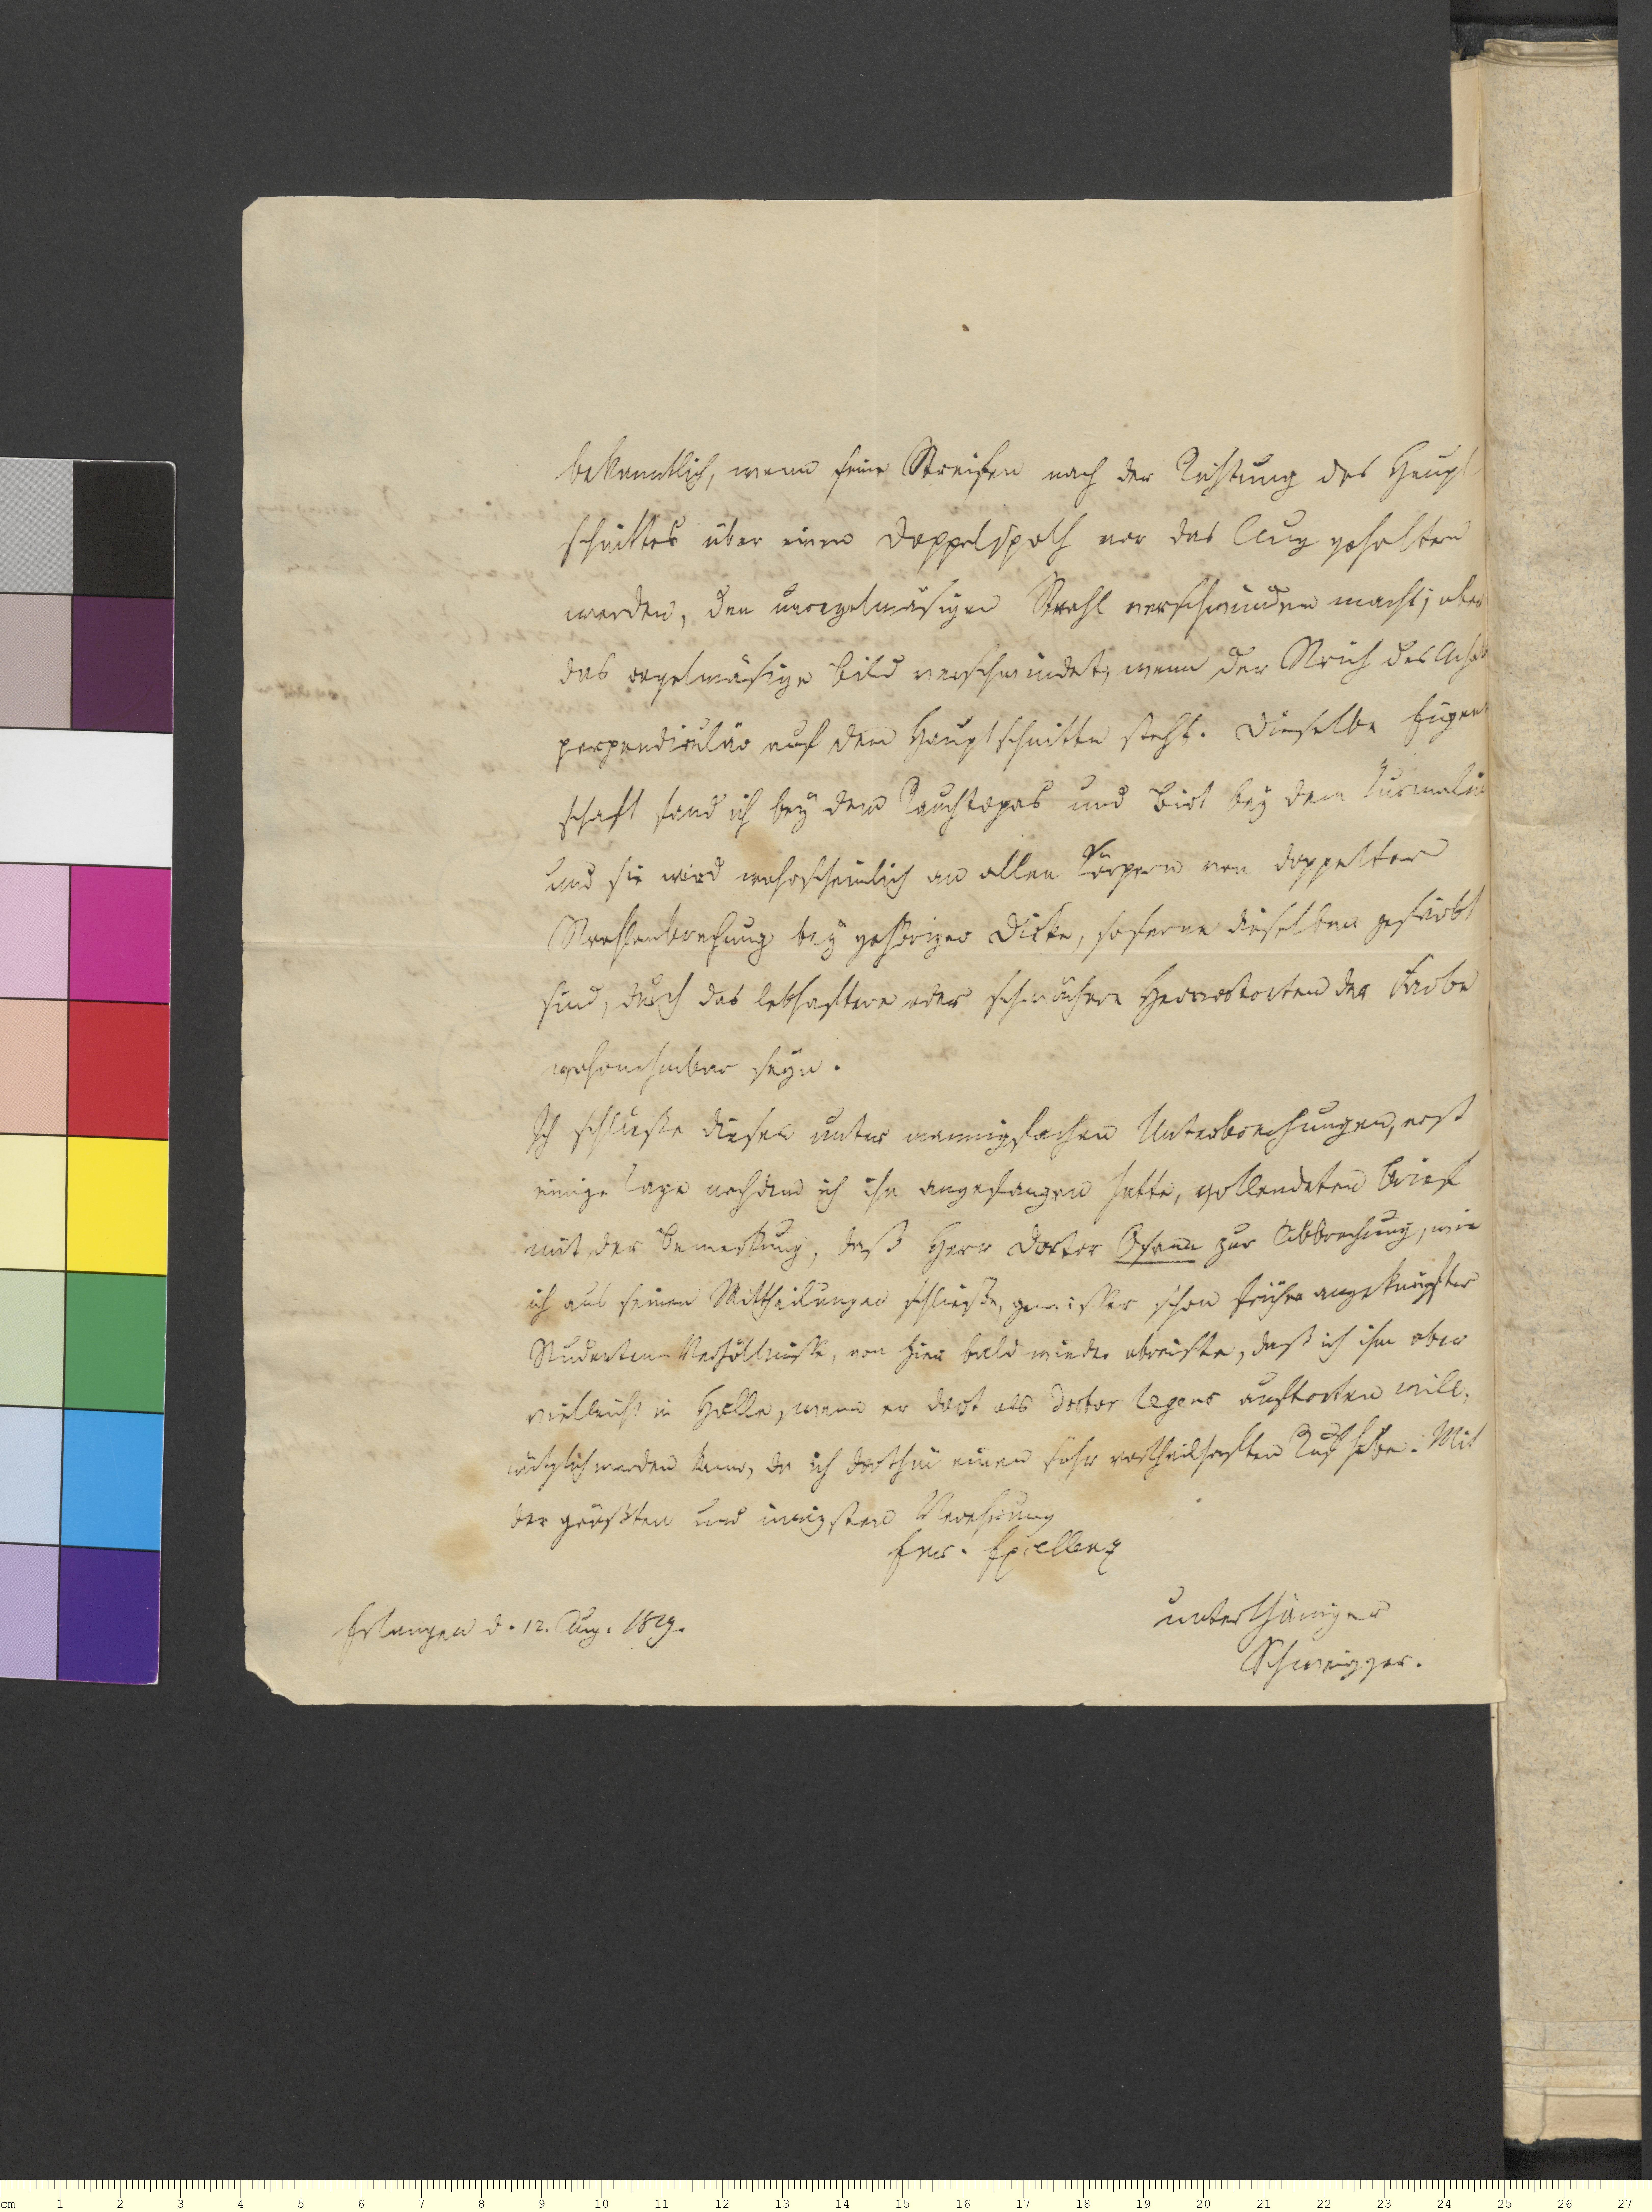 bekanntlich, wenn seine Streifen nach der Richtung des Haupt
schnittes über einen Doppelspath vor das Aug gehalten
werden, den unregelmäsigen Strahl verschwinden macht; aber
das regelmäsige Bild verschwindet, wenn der Strich des Achats
perpendiculär auf dem Hauptschnitte steht. Dieselbe Eigen
schaft fand ich bey dem Rauchtopas und Biot bey dem Turmalin
und sie wird wahrscheinlich an allen Körpern von doppelter
Strahlenbrechung bey gehöriger Dicke, soferne dieselben gefärbt
sind, durch das lebhaftere oder schwächere Hervortreten der Farbe
wahrnehmbar seyn.
Ich schließe diesen unter mannigfachen Unterbrechungen, erst
einige Tage nachdem ich ihn angefangen hatte, vollendeten Brief
mit der Bemerkung, daß Herr Doctor Osann zur Abbrechung, wie
ich aus seinen Mittheilungen schließe, gewisser schon früher angeknüpfter
Studenten-Verhältnisse, von hier bald wieder abreiste, daß ich ihm aber
vielleicht in Halle, wenn er dort als Doctor legens auftreten will,
nützlich werden kann, da ich dorthin einen sehr vortheilhaften Ruf habe. Mit
der größten und innigsten Verehrung
Ewr. Excellenz
unterthäniger
Erlangen d. 12. Aug. 1819.
Schweigger.